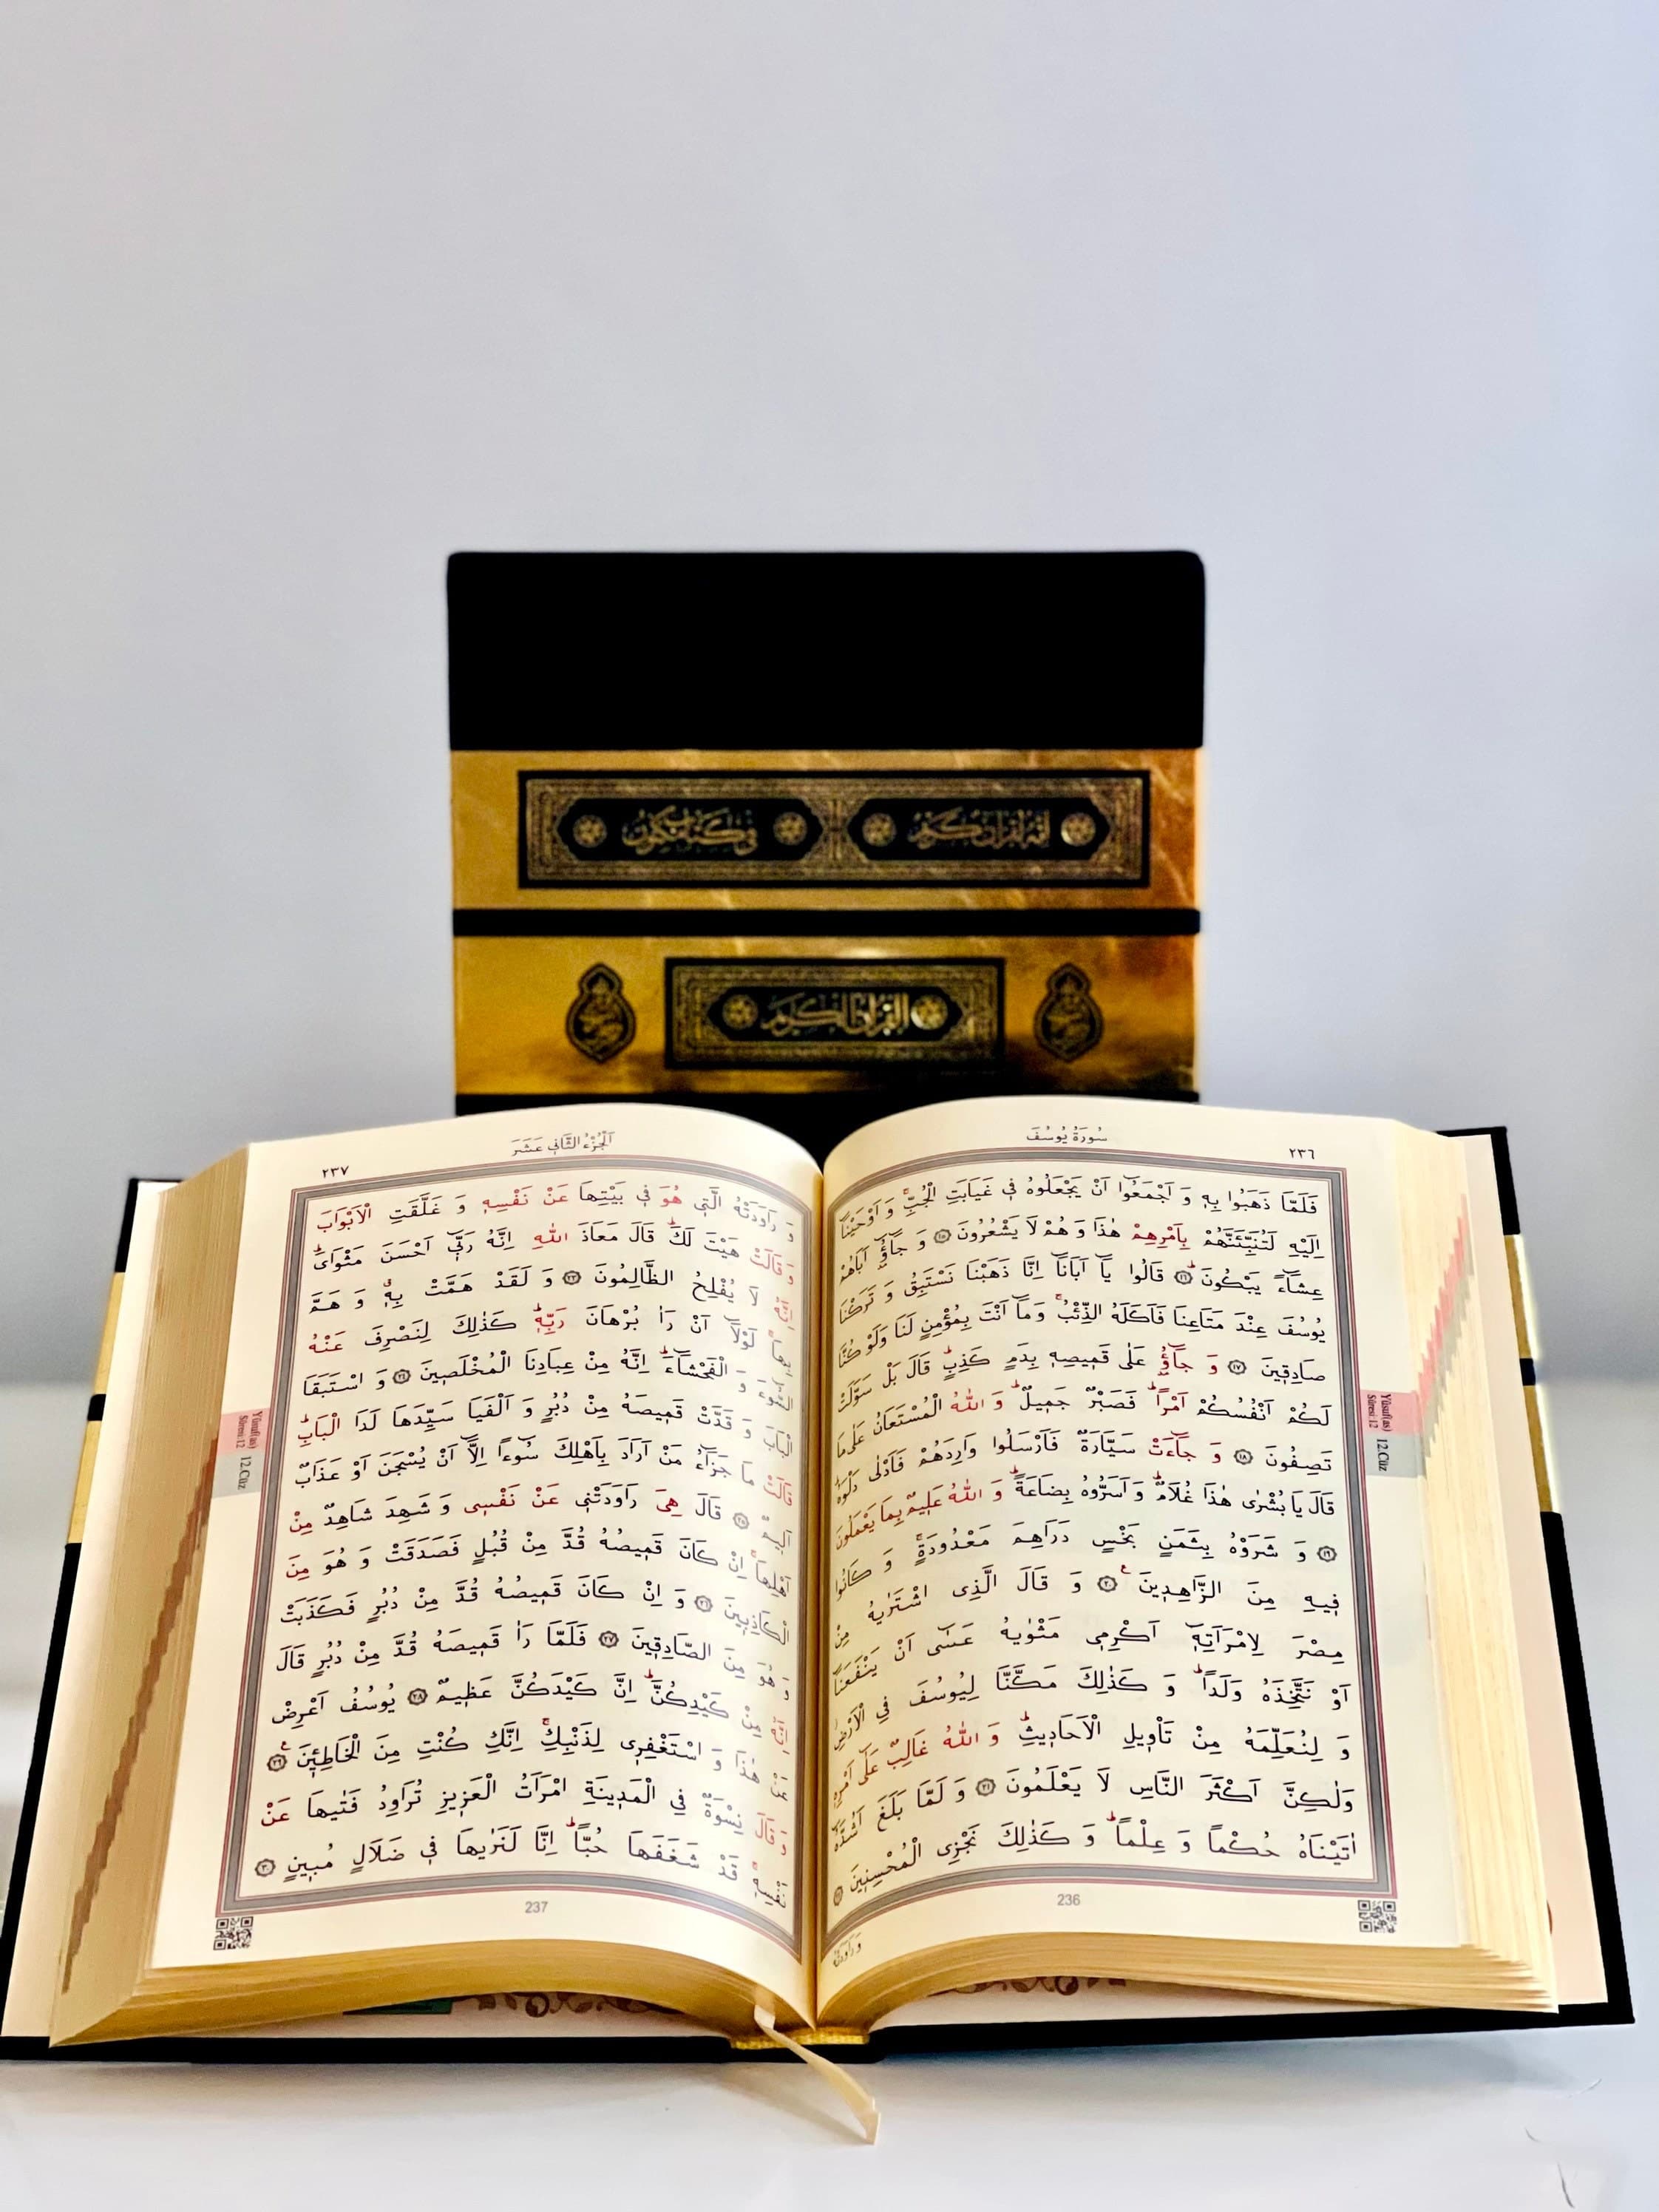 إنه لقرآن كريم
في كتاب مكنون
القرآن الكريم
سُورَةُ يُوسُفَ
٢٣٦
فَلَمَّا ذَهَبُوا بِهٖ وَ اَجْمَعُٓوا اَنْ يَجْعَلُوهُ فٖي غَيَابَتِ الْجُبِّۚ وَ اَوْحَيْنَٓا
اِلَيْهِ لَتُنَبِّئَنَّهُمْ بِاَمْرِهِمْ هٰذَا وَ هُمْ لَا يَشْعُرُونَ ﴿١٥﴾ وَ جَٓاؤُٓ اَبَاهُمْ
عِشَٓاءً يَبْكُونَ ﴿١٦﴾ قَالُوا يَٓا اَبَانَٓا اِنَّا ذَهَبْنَا نَسْتَبِقُ وَ تَرَكْنَا
يُوسُفَ عِنْدَ مَتَاعِنَا فَاَكَلَهُ الذِّئْبُۚ وَ مَٓا اَنْتَ بِمُؤْمِنٍ لَنَا وَلَوْ كُنَّا
صَادِقٖينَ ﴿١٧﴾ وَ جَٓاؤُٓ عَلٰى قَمٖيصِهٖ بِدَمٍ كَذِبٍؕ قَالَ بَلْ سَوَّلَتْ
لَكُمْ اَنْفُسُكُمْ اَمْراًؕ فَصَبْرٌ جَمٖيلٌؕ وَ اللّٰهُ الْمُسْتَعَانُ عَلٰى مَا
تَصِفُونَ ﴿١٨﴾ وَ جَٓاءَتْ سَيَّارَةٌ فَاَرْسَلُوا وَارِدَهُمْ فَاَدْلٰى دَلْوَهُؕ
قَالَ يَا بُشْرٰى هٰذَا غُلَامٌؕ وَ اَسَرُّوهُ بِضَاعَةًؕ وَ اللّٰهُ عَلٖيمٌ بِمَا يَعْمَلُونَ
﴿١٩﴾ وَ شَرَوْهُ بِثَمَنٍ بَخْسٍ دَرَاهِمَ مَعْدُودَةٍۚ وَ كَانُوا
فٖيهِ مِنَ الزَّاهِدٖينَ ﴿٢٠﴾ۧ وَ قَالَ الَّذِى اشْتَرٰيهُ مِنْ
مِصْرَ لِامْرَاَتِهٖٓ اَكْرِمٖى مَثْوٰيهُ عَسٰٓى اَنْ يَنْفَعَنَٓا
اَوْ نَتَّخِذَهُ وَلَداًؕ وَ كَذٰلِكَ مَكَّنَّا لِيُوسُفَ فِي الْاَرْضِ
وَ لِنُعَلِّمَهُ مِنْ تَأْوٖيلِ الْاَحَادٖيثِؕ وَ اللّٰهُ غَالِبٌ عَلٰٓى اَمْرِهٖ
وَلٰكِنَّ اَكْثَرَ النَّاسِ لَا يَعْلَمُونَ ﴿٢١﴾ وَ لَمَّا بَلَغَ اَشُدَّهُٓ
اٰتَيْنَاهُ حُكْماً وَ عِلْماًؕ وَ كَذٰلِكَ نَجْزِى الْمُحْسِنٖينَ ﴿٢٢﴾
Yûsuf(as)
Sûresi 12
12.Cüz
236
وَ رَاوَدَتْهُ
اَلْجُزْءُ الثَّانٖي عَشَرَ
٢٣٧
وَ رَاوَدَتْهُ الَّتٖي هُوَ فٖي بَيْتِهَا عَنْ نَفْسِهٖ وَ غَلَّقَتِ الْاَبْوَابَ
وَ قَالَتْ هَيْتَ لَكَؕ قَالَ مَعَاذَ اللّٰهِ اِنَّهُ رَبّٖٓي اَحْسَنَ مَثْوَاىَؕ
اِنَّهُ لَا يُفْلِحُ الظَّالِمُونَ ﴿٢٣﴾ وَ لَقَدْ هَمَّتْ بِهٖۚ وَ هَمَّ
بِهَاۚ لَوْلَٓا اَنْ رَاٰ بُرْهَانَ رَبِّهٖؕ كَذٰلِكَ لِنَصْرِفَ عَنْهُ
السُّٓوءَ وَ الْفَحْشَٓاءَؕ اِنَّهُ مِنْ عِبَادِنَا الْمُخْلَصٖينَ ﴿٢٤﴾ وَ اسْتَبَقَا
الْبَابَ وَ قَدَّتْ قَمٖيصَهُ مِنْ دُبُرٍ وَ اَلْفَيَا سَيِّدَهَا لَدَا الْبَابِؕ
قَالَتْ مَا جَزَٓاءُ مَنْ اَرَادَ بِاَهْلِكَ سُٓوءاً اِلَّٓا اَنْ يُسْجَنَ اَوْ عَذَابٌ
اَلٖيمٌ ﴿٢٥﴾ قَالَ هِىَ رَاوَدَتْنٖي عَنْ نَفْسٖى وَ شَهِدَ شَاهِدٌ مِنْ
اَهْلِهَاۚ اِنْ كَانَ قَمٖيصُهُ قُدَّ مِنْ قُبُلٍ فَصَدَقَتْ وَ هُوَ مِنَ
الْكَاذِبٖينَ ﴿٢٦﴾ وَ اِنْ كَانَ قَمٖيصُهُ قُدَّ مِنْ دُبُرٍ فَكَذَبَتْ
وَ هُوَ مِنَ الصَّادِقٖينَ ﴿٢٧﴾ فَلَمَّا رَاٰ قَمٖيصَهُ قُدَّ مِنْ دُبُرٍ قَالَ
اِنَّهُ مِنْ كَيْدِكُنَّؕ اِنَّ كَيْدَكُنَّ عَظٖيمٌ ﴿٢٨﴾ يُوسُفُ اَعْرِضْ
عَنْ هٰذَا وَ اسْتَغْفِرٖى لِذَنْبِكِۚ اِنَّكِ كُنْتِ مِنَ الْخَاطِـٖٔينَ ﴿٢٩﴾ۧ
وَ قَالَ نِسْوَةٌ فِي الْمَدٖينَةِ امْرَاَتُ الْعَزٖيزِ تُرَاوِدُ فَتٰيهَا عَنْ
نَفْسِهٖۚ قَدْ شَغَفَهَا حُبّاًؕ اِنَّا لَنَرٰيهَا فٖي ضَلَالٍ مُبٖينٍ ﴿٣٠﴾
Yûsuf(as)
Sûresi 12
12.Cüz
237